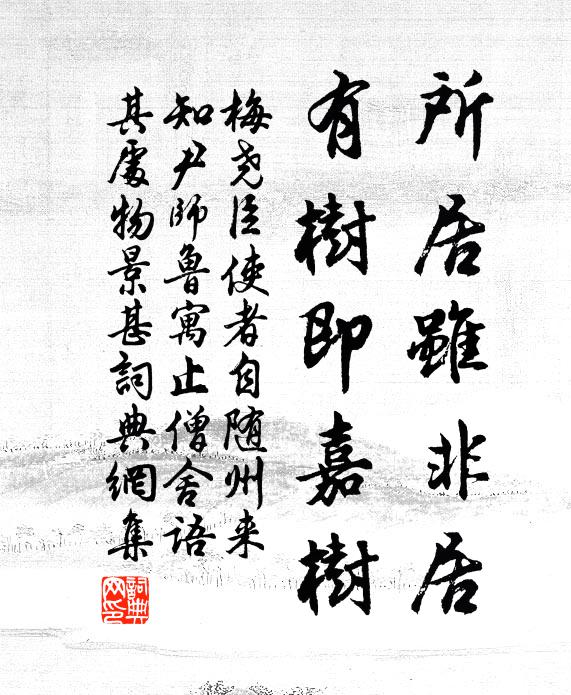 所居雖非居
有樹即嘉樹
梅尧臣使者自随州来
知尹師魯寓止僧舍語
其處物景甚詞典網集
詞典
网印